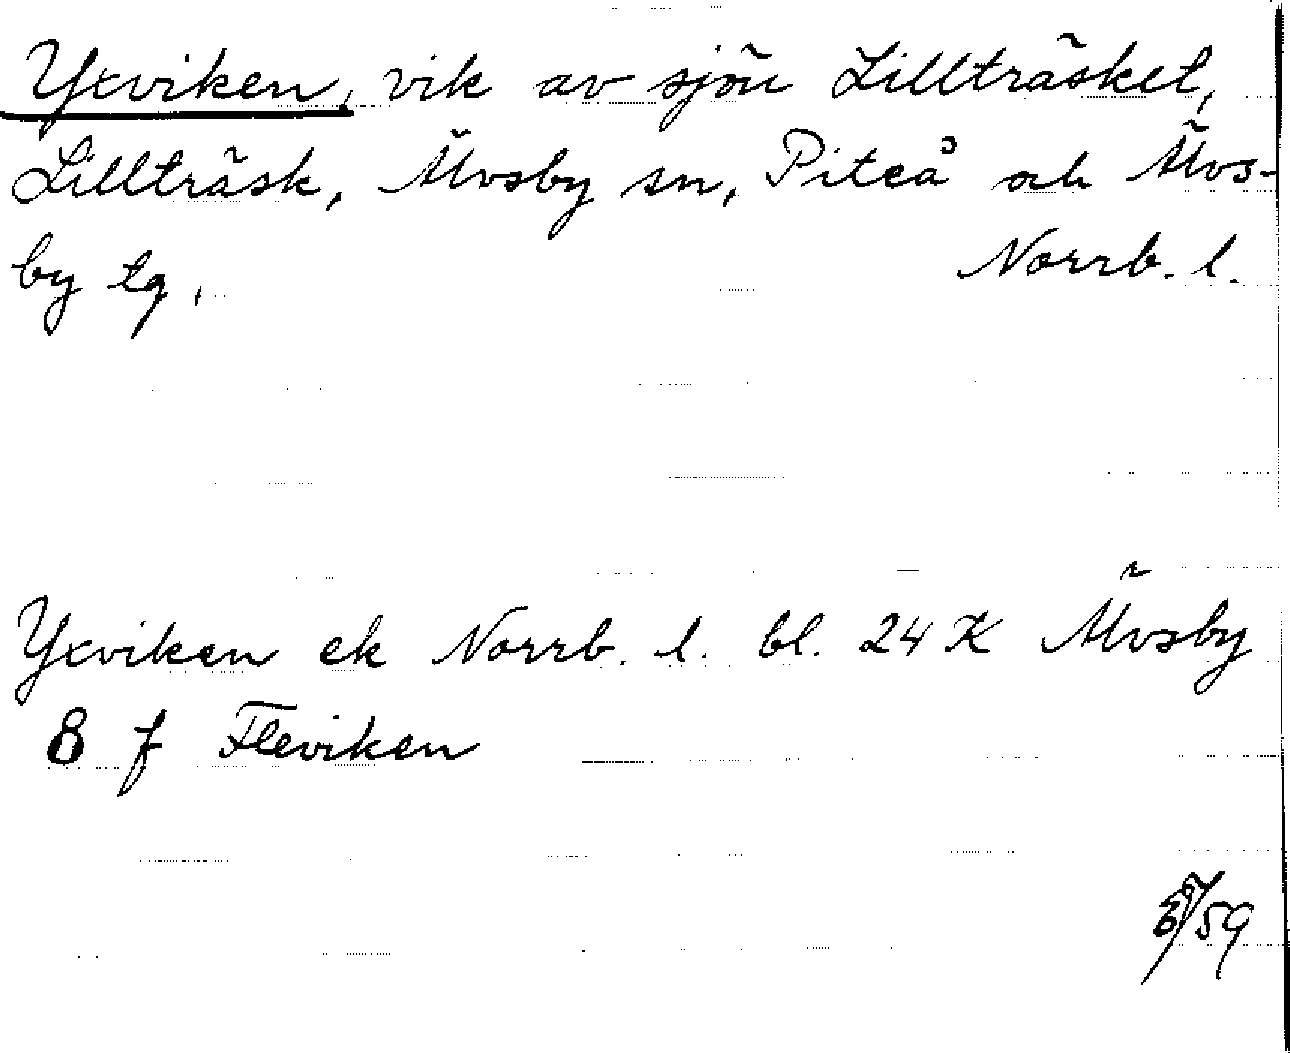 Yxviken, vik av sjön Lillträsket,
Lillträsk, Älvsby sn, Piteå och Älvs-
by tg, Norrb. l.
Yxviken ek Norrb. l. bl. 24 K Älvsby
8 f Fleviken
/59